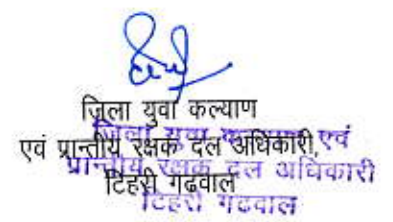 जिला युवा कल्याण
एवं प्रान्तीय रक्षक दल अधिकारी,
टिहरी गढवाल
जिला युवा कल्याण एवं
प्रान्तीय रक्षक दल अधिकारी
टिहरी गढवाल